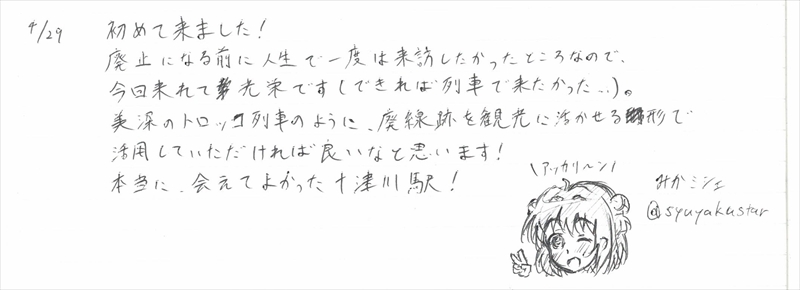 4/29 初めて来ました!
廃止になる前に人生で一度は来訪したかったところなので、
今回来れて光栄です(できれば列車で来たかった…)。
美深のトロッコ列車のように、廃線跡を観光に活かせる形で
活用していただければ良いなと思います!
本当に、会えてよかった十津川駅!
\アッカリ〜ン/
みかミシェ
@syuyakustar